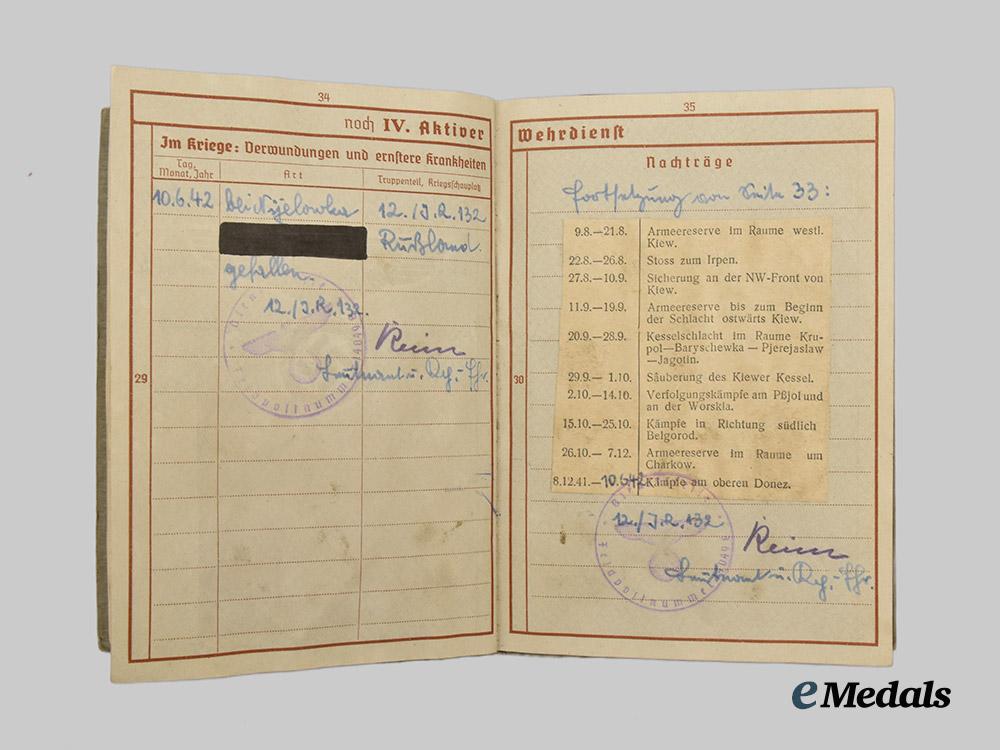 34
noch IV. Aktiver
Im Kriege: Verwundungen und ernstere Krankheiten
Tag, Monat, Jahr
Art
Truppenteil, Kriegsschauplatz
10.6.42
bei Nijelowka
12./J.R.132
Rußland
gefallen.
12./J.R.132.
Reim
Leutnant u. Kp.-Fhr.
29
Dienststelle
Feldpostnummer
35
Wehrdienst
Nachträge
Fortsetzung von Seite 33:
9.8.—21.8. Armeereserve im Raume westl.
Kiew.
22.8.—26.8. Stoss zum Irpen.
27.8.—10.9. Sicherung an der NW-Front von
Kiew.
11.9.—19.9. Armeereserve bis zum Beginn
der Schlacht ostwärts Kiew.
20.9.—28.9. Kesselschlacht im Raume Kru-
pol—Baryschewka — Pjerejaslaw
—Jagotin.
29.9.— 1.10. Säuberung des Kiewer Kessel.
2.10.—14.10. Verfolgungskämpfe am Pßjol und
an der Worskla.
15.10.—25.10. Kämpfe in Richtung südlich
Belgorod.
26.10.— 7.12. Armeereserve im Raume um
Charkow.
8.12.41.—10.6.42 Kämpfe am oberen Donez.
12./J.R.132
Reim
Leutnant u. Kp.-Fhr.
30
Feldpostnummer
eMedals